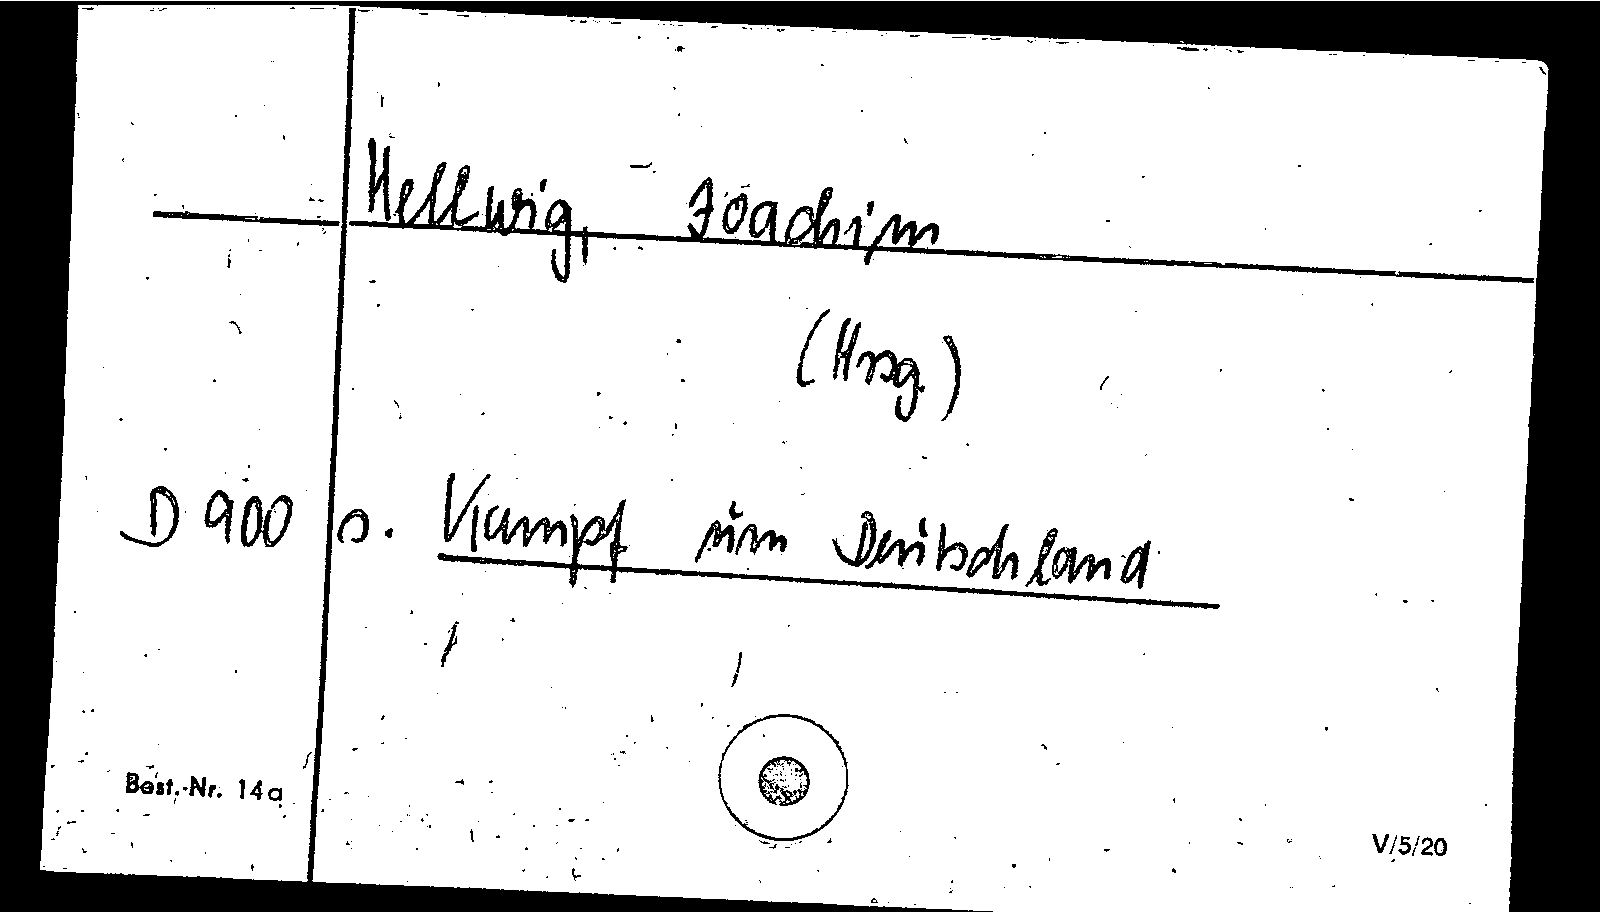 Hellwig, Joachim
(Hrsg)
D 900 s. Kampf um Deutschland
Best.-Nr. 14a
V/5/20